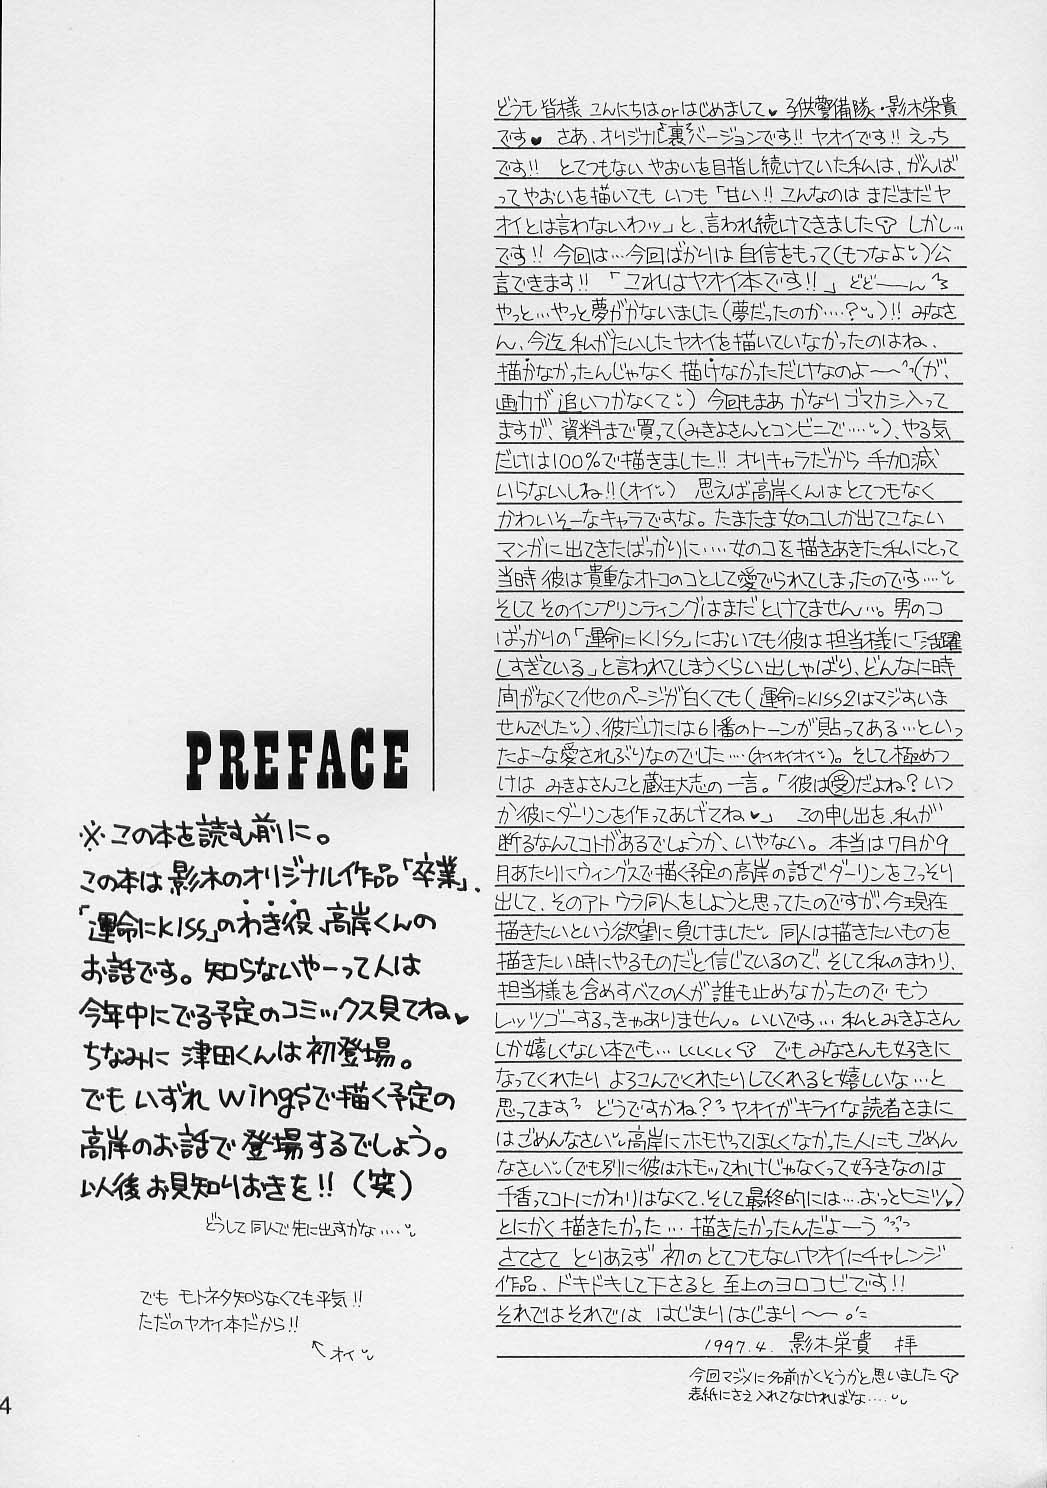 どうも皆様 こんにちはorはじめまして♥子供警備隊・影木栄貴
です♥ さあ、オリジナル「裏」バージョンです!! ヤオイです!! えっち
です!! とてつもない やおいを目指し続けていた私は、がんば
ってやおいを描いても いつも「甘い!! こんなのは まだまだヤ
オイとは言わないわッ」と、言われ続けてきました しかし…
です!! 今回は…今回ばかりは 自信をもって(もつなよ)公
言できます!! 「これはヤオイ本です!!」 どど──ん
やっと…やっと夢がかないました(夢だったのか…･?)!! みなさ
ん、今迄 私がたいしたヤオイを描いていなかったのはね、
描かなかったんじゃなく 描けなかっただけなのよ〜〜(が、
画力が 追いつかなくて) 今回もまあ かなり ゴマカシ入って
ますが、資料まで買って(みきよさんとコンビニで…･)、やる気
だけは100%で描きました!! オリキャラだから 手加減
いらないしね!!(オイ) 思えば高岸くんはとてつもなく
かわいそーなキャラですな。たまたま女のコしか出てこない
マンガに出てきたばっかりに…･･女のコを描きあきた私にとって
当時 彼は貴重なオトコのコとして愛でられてしまったのです…･
そして そのインプリンティングはまだとけてません…。男のコ
ばっかりの「運命にKISS」においても彼は担当様に「活躍
しすぎている」と言われてしまうくらい出しゃばり、どんなに時
間がなくて他のページが白くても(運命にKISS2はマジすいま
せんでした)、彼だけには61番のトーンが貼ってある…といっ
たよーな愛されぶりなのでした…･(オイオイオイ)。そして極めつ
けは みきよさんこと蔵王大志の一言。「彼は受だよね? いつ
か彼にダーリンを作ってあげてね♥」 この申し出を、私が
断るなんてコトがあるでしょうか、いやない。本当は7月か9
月あたりにウィングスで描く予定の高岸の話でダーリンをこっそり
出して、そのアトウラ同人をしようと思ってたのですが、今現在
描きたいという欲望に負けました 同人は描きたいものを
描きたい時にやるものだと信じているので、そして私のまわり、
担当様を含めすべての人が誰も止めなかったので もう
レッツゴーするっきゃありません。いいです…私とみきよさん
しか嬉しくない本でも…しくしくしく でもみなさんも好きに
なってくれたり よろこんでくれたりしてくれると嬉しいな…と
思ってます どうですかね? ヤオイがキライな読者さまに
はごめんなさい 高岸にホモやってほしくなかった人にも ごめん
なさい(でも別に彼はホモってわけじゃなくって好きなのは
千香ってコトにかわりはなくて、そして最終的には…･おっとヒミツ♥)
とにかく 描きたかった…描きたかったんだよーう
さてさて とりあえず 初のとてつもないヤオイにチャレンジ
作品、ドキドキして下さると 至上のヨロコビです!!
それではそれでは はじまりはじまり〜〜
1997.4. 影木栄貴 拝
今回マジメに名前かくそうかと思いました
表紙にさえ入れてなければな…･･
PREFACE
※この本を読む前に。
この本は影木のオリジナル作品「卒業」、
「運命にKISS」のわき役、高岸くんの
お話です。知らないやーって人は
今年中にでる予定のコミックス見てね♥
ちなみに 津田くんは初登場。
でも いずれ Wingsで描く予定の
高岸のお話で登場するでしょう。
以後お見知りおきを!!(笑)
どうして同人で先に出すかな…･･
でも モトネタ知らなくても平気!!
ただのヤオイ本だから!!
↖オイ
4